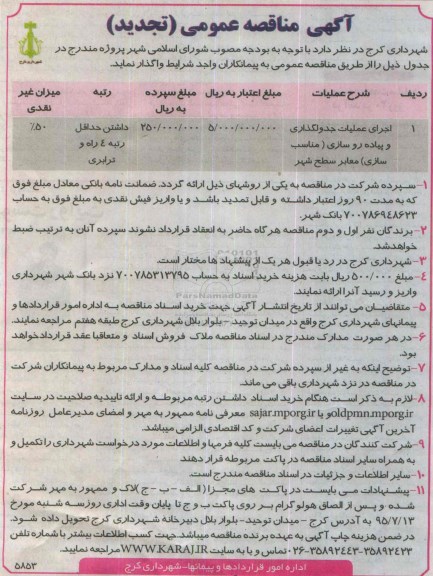 آگهی مناقصه عمومی (تجدید)
شهرداری کرج در نظر دارد با توجه به بودجه مصوب شورای اسلامی شهر پروژه مندرج در
جدول ذیل را از طریق مناقصه عمومی به پیمانکاران واجد شرایط واگذار نماید.
ردیف شرح عملیات مبلغ اعتبار به ریال مبلغ سپرده به ریال رتبه میزان غیر نقدی
۱ اجرای عملیات جدولگذاری و پیاده رو سازی ( مناسب سازی) معابر سطح شهر ۵/۰۰۰/۰۰۰/۰۰۰ ۲۵۰/۰۰۰/۰۰۰ داشتن حداقل رتبه ٤ راه و ترابری ٪۵۰
۱-سپرده شرکت در مناقصه به یکی از روشهای ذیل ارائه گردد. ضمانت نامه بانکی معادل مبلغ فوق
که به مدت ۹۰ روز اعتبار داشته و قابل تمدید باشد و یا واریز فیش نقدی به مبلغ فوق به حساب
۷۰۰۷۸۶۹۴۸۶۲۳ بانک شهر.
۲-برندگان نفر اول و دوم مناقصه هرگاه حاضر به انعقاد قرارداد نشوند سپرده آنان به ترتیب ضبط
خواهدشد.
۳-شهرداری کرج در رد یا قبول هر یک از پیشنهاد ها مختار است.
۴-مبلغ ۵۰۰/۰۰۰ ریال بابت هزینه خرید اسناد به حساب ۷۰۰۷۸۵۳۱۳۷۹۵ نزد بانک شهر شهرداری
واریز و رسید آنرا ارائه نمایند.
۵- متقاضیان می توانند از تاریخ انتشار آگهی جهت خرید اسناد مناقصه به اداره امور قراردادها و
پیمانهای شهرداری کرج واقع در میدان توحید- بلوار بلال شهرداری کرج طبقه هفتم مراجعه نمایند.
۶-در هر صورت مدارک مندرج در اسناد مناقصه ملاک فروش اسناد و متعاقبا عقد قراردادخواهد
بود.
۷-توضیح اینکه به غیر از سپرده شرکت در مناقصه کلیه اسناد و مدارک مربوط به پیمانکاران شرکت
در مناقصه در نزد شهرداری باقی می ماند.
۸-لازم به ذکر است هنگام خرید اسناد داشتن رتبه مربوطه و ارائه تاییدیه صلاحیت در سایت
oldpmn.mporg.ir و یا sajar.mporg.ir معرفی نامه ممهور به مهر و امضای مدیرعامل روزنامه
آخرین آگهی تغییرات اعضای شرکت و کد اقتصادی الزامی میباشد.
۹-شرکت کنندگان در مناقصه می بایست کلیه فرمها و اطلاعات مورد درخواست شهرداری را تکمیل و
به همراه سایر اسناد مناقصه در پاکت مربوطه قرار دهند
۱۰-سایر اطلاعات و جزئیات در اسناد مناقصه مندرج است.
۱۱-پیشنهادات می بایست در پاکت های مجزا ( الف - ب - ج)لاک و ممهور به مهر شرکت
شده و پس از الصاق هولوگرام بر روی پاکت ب و ج تا پایان وقت اداری روز سه شنبه مورخ
۹۵/۷/۱۳ به آدرس کرج - میدان توحید- بلوار بلال دبیرخانه شهرداری کرج تحویل داده شود.
در ضمن هزینه چاپ آگهی به عهده برنده مناقصه میباشد. جهت کسب اطلاعات بیشتر با شماره تلفن
۳۵۸۹۲۴۲۳-۰۲۶-۳۵۸۹۲۴۴۳تماس و یا به سایت WWW.KARAJ.IR مراجعه نمایید.
اداره امور قراردادها و پیمانها-شهرداری کرج
۵۸۵۳
ParsnamadData